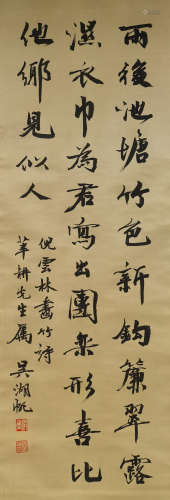 雨後池塘竹色新鈎簾翠露
濕衣巾為君寫出團欒形喜比
他鄉見似人
倪雲林畫竹詩
華耕先生屬 吳湖帆